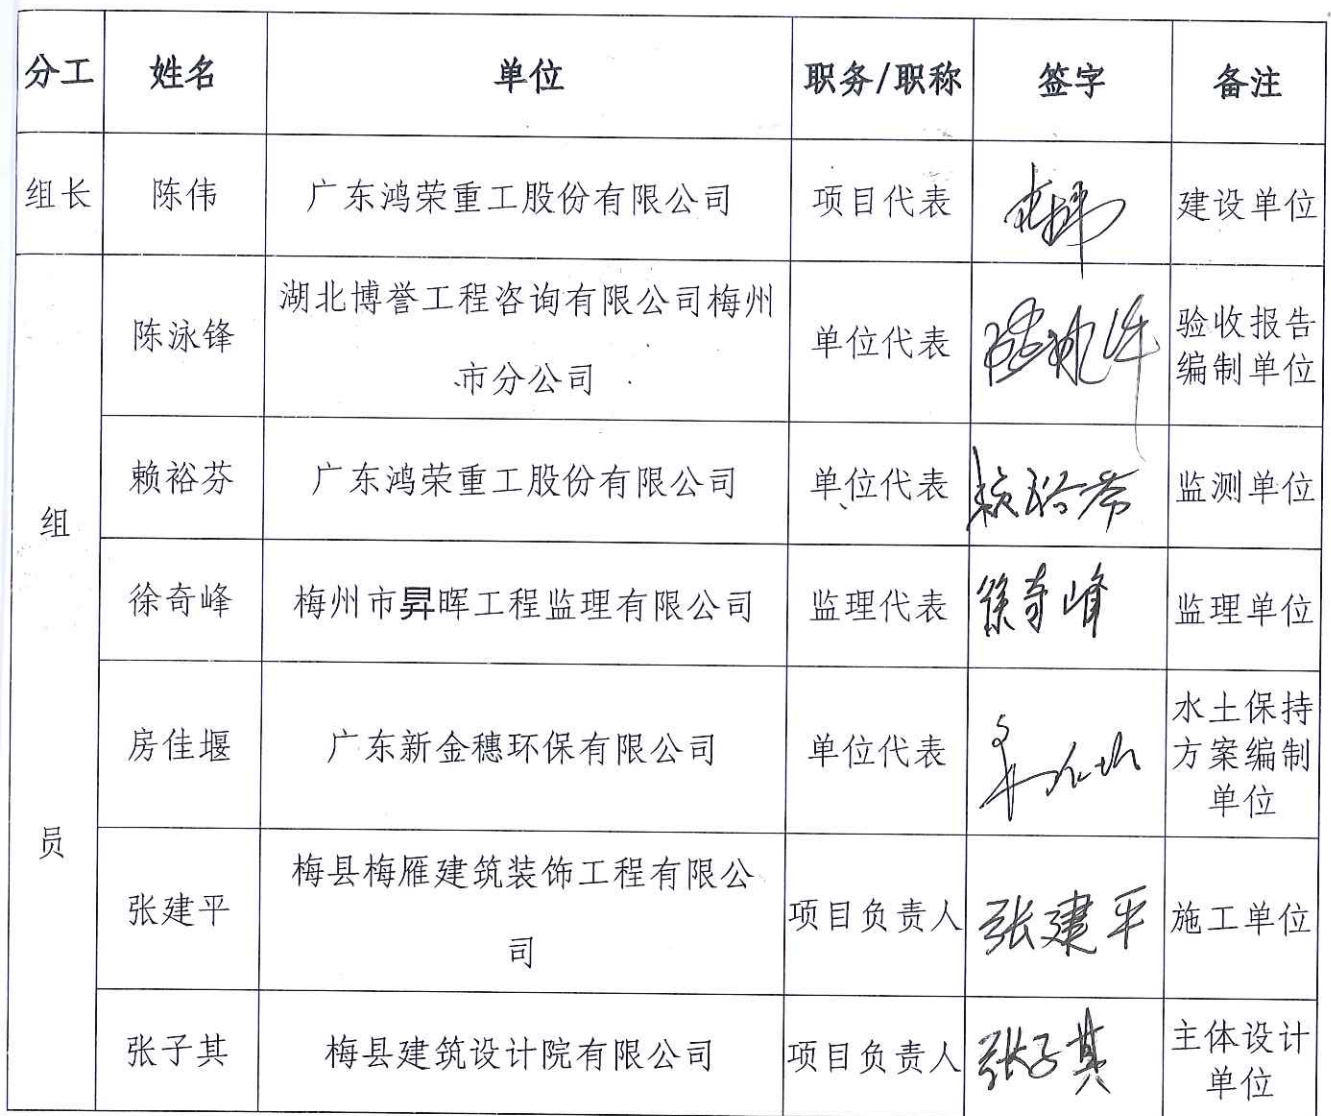 分工 姓名 单位 职务/职称 签字 备注
组长 陈伟 广东鸿荣重工股份有限公司 项目代表 建设单位
组
员
陈泳锋 湖北博誉工程咨询有限公司梅州
市分公司 单位代表 陈泳锋 验收报告
编制单位
赖裕芬 广东鸿荣重工股份有限公司 单位代表 赖裕芬 监测单位
徐奇峰 梅州市昇晖工程监理有限公司 监理代表 徐奇峰 监理单位
房佳堰 广东新金穗环保有限公司 单位代表 水土保持
方案编制
单位
张建平 梅县梅雁建筑装饰工程有限公
司 项目负责人 张建平 施工单位
张子其 梅县建筑设计院有限公司 项目负责人 张子其 主体设计
单位